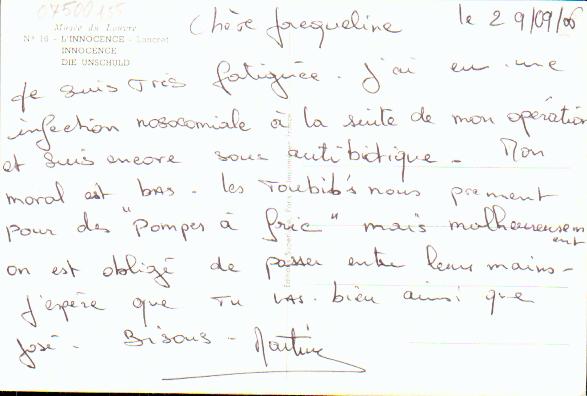 07500155
Musée du Louvre
Nº 16 - L'INNOCENCE - Lancret
INNOCENCE
DIE UNSCHULD
Chère Jacqueline le 29/09/06
Je suis très fatiguée. J'ai eu une
infection nosocomiale à la suite de mon opération
et suis encore sous antibiotique - Mon
moral est bas - les Toubib's nous prennent
pour des "pompes à fric" mais malheureusement
on est obligé de passer entre leurs mains -
J'espère que tu vas bien ainsi que
José. Bisous - Martine